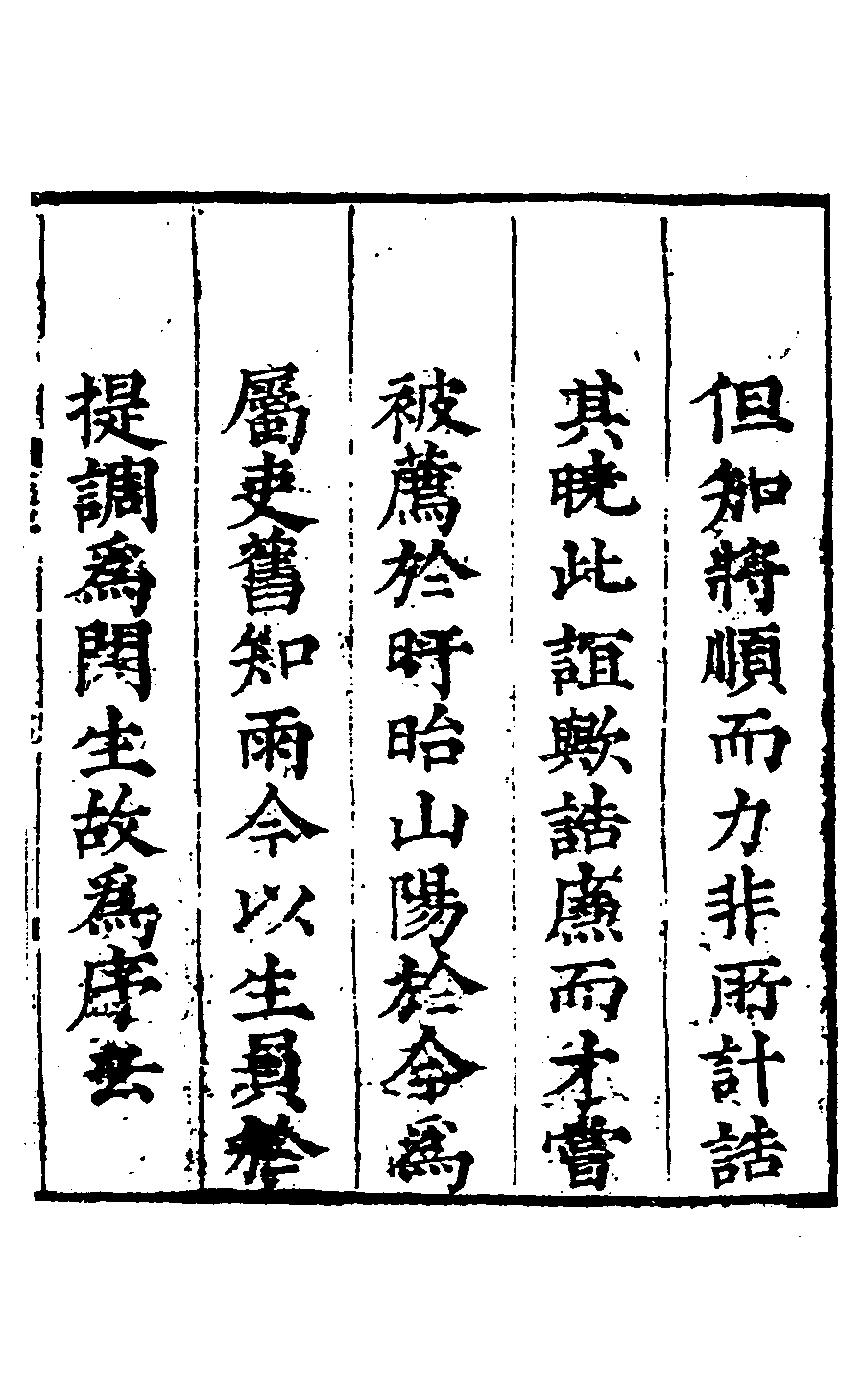 但知將順而力非所計誥
其曉此誼歟誥廉而才嘗
被薦於盱眙山陽於今爲
屬吏舊知雨今以生員
提調爲閔生故爲序云